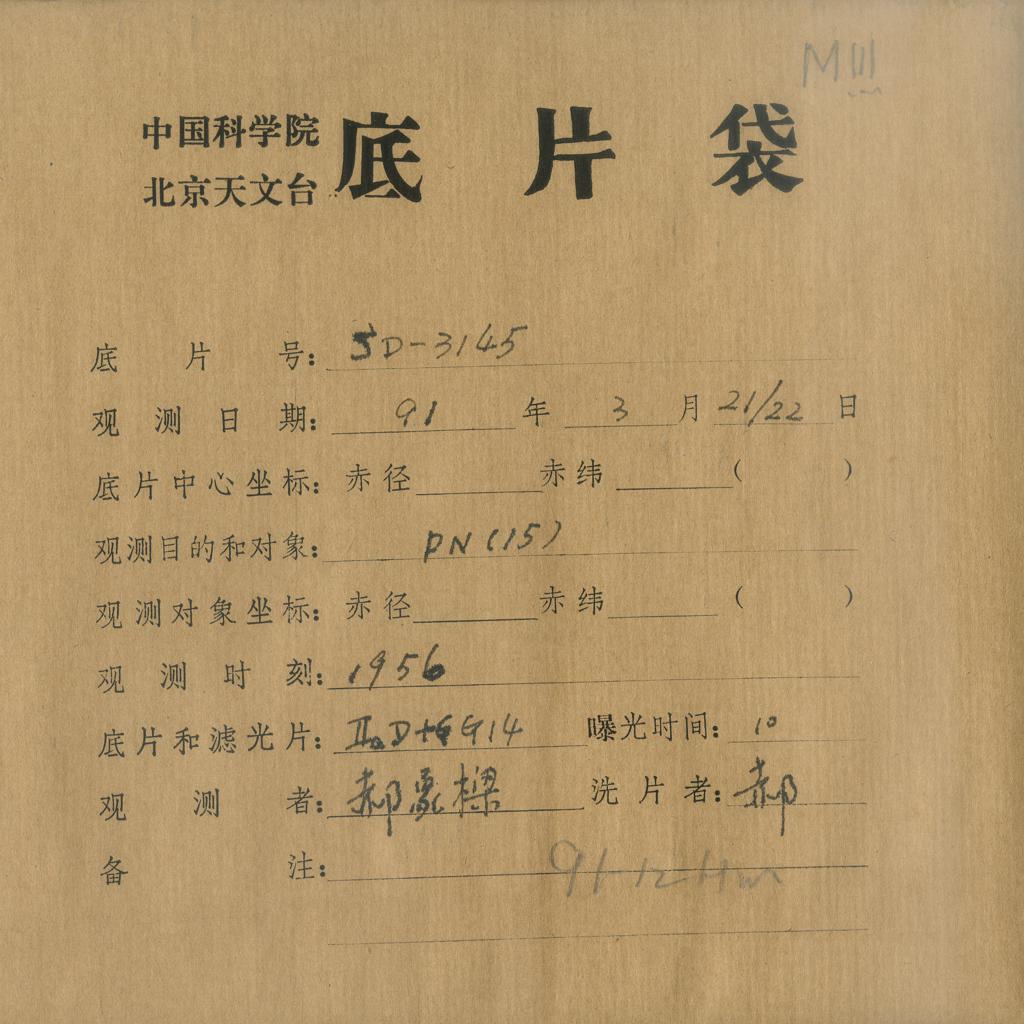 M111
中国科学院
北京天文台 底片袋
底片号: SD-3145
观测日期: 91 年 3 月 21/22 日
底片中心坐标: 赤径 赤纬 ( )
观测目的和对象: PN(15)
观测对象坐标: 赤径 赤纬 ( )
观测时刻: 1956
底片和滤光片: IIaD+GG14 曝光时间: 10
观测者: 郝象樑 洗片者: 郝
备注: 91-12